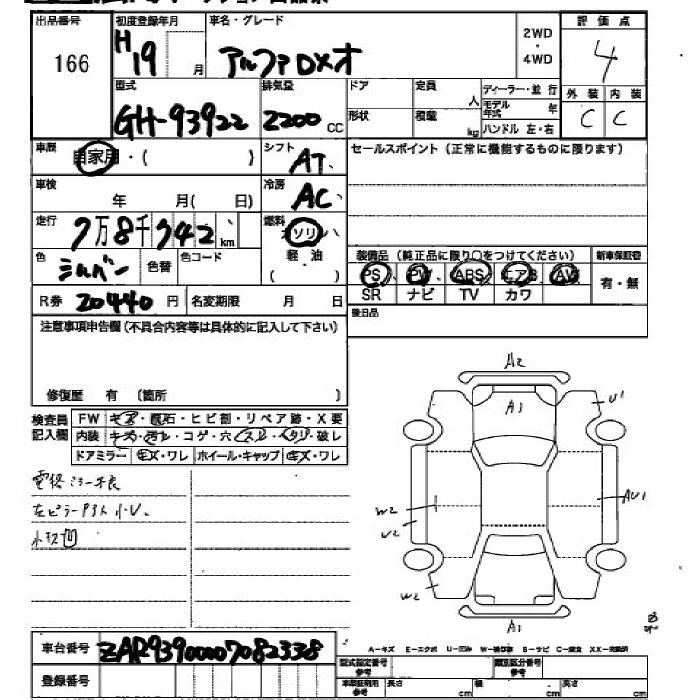 出品番号 初度登録年月 車名・グレード 評価点
166 H19 月 アルファ DXオ 2WD・4WD 4
型式 排気量 ドア 定員 人 ディーラー・並行 外装 内装
GH-93922 2200 CC 形状 積載 kg モデル年式 年 C C
ハンドル 左・右
車歴 自家用・( ) シフト AT セールスポイント(正常に機能するものに限ります)
車検 年 月( 日) 冷房 AC
走行 7万8千342km 燃料 ガソリン
軽・油
( )
色 シルバー 色替 色コード 装備品(純正品に限り○をつけてください) 新車保証書
PS PW ABS エアB AW 有・無
R券 20440円 名変期限 月 日 SR ナビ TV カワ
後日品
注意事項申告欄(不具合内容等は具体的に記入して下さい)
修復歴 有 (箇所 )
検査員記入欄 FW キズ・飛石・ヒビ割・リペア跡・X要
内装 キズ・汚レ・コゲ・穴・スレ・ヘタリ・破レ
ドアミラー キズ・ワレ ホイール・キャップ キズ・ワレ
A2
A1
U1
W2
U2
AU1
W2
A1
電格ミラー不良
小U
車台番号 ZAR93900007082338
A-キズ E-エクボ U-凹み W-補修跡 S-サビ C-腐食 XX-交換済
登録番号 型式指定番号 参考 類別区分番号 参考
車庫証明用 参考 長さ cm 幅 cm 高さ cm